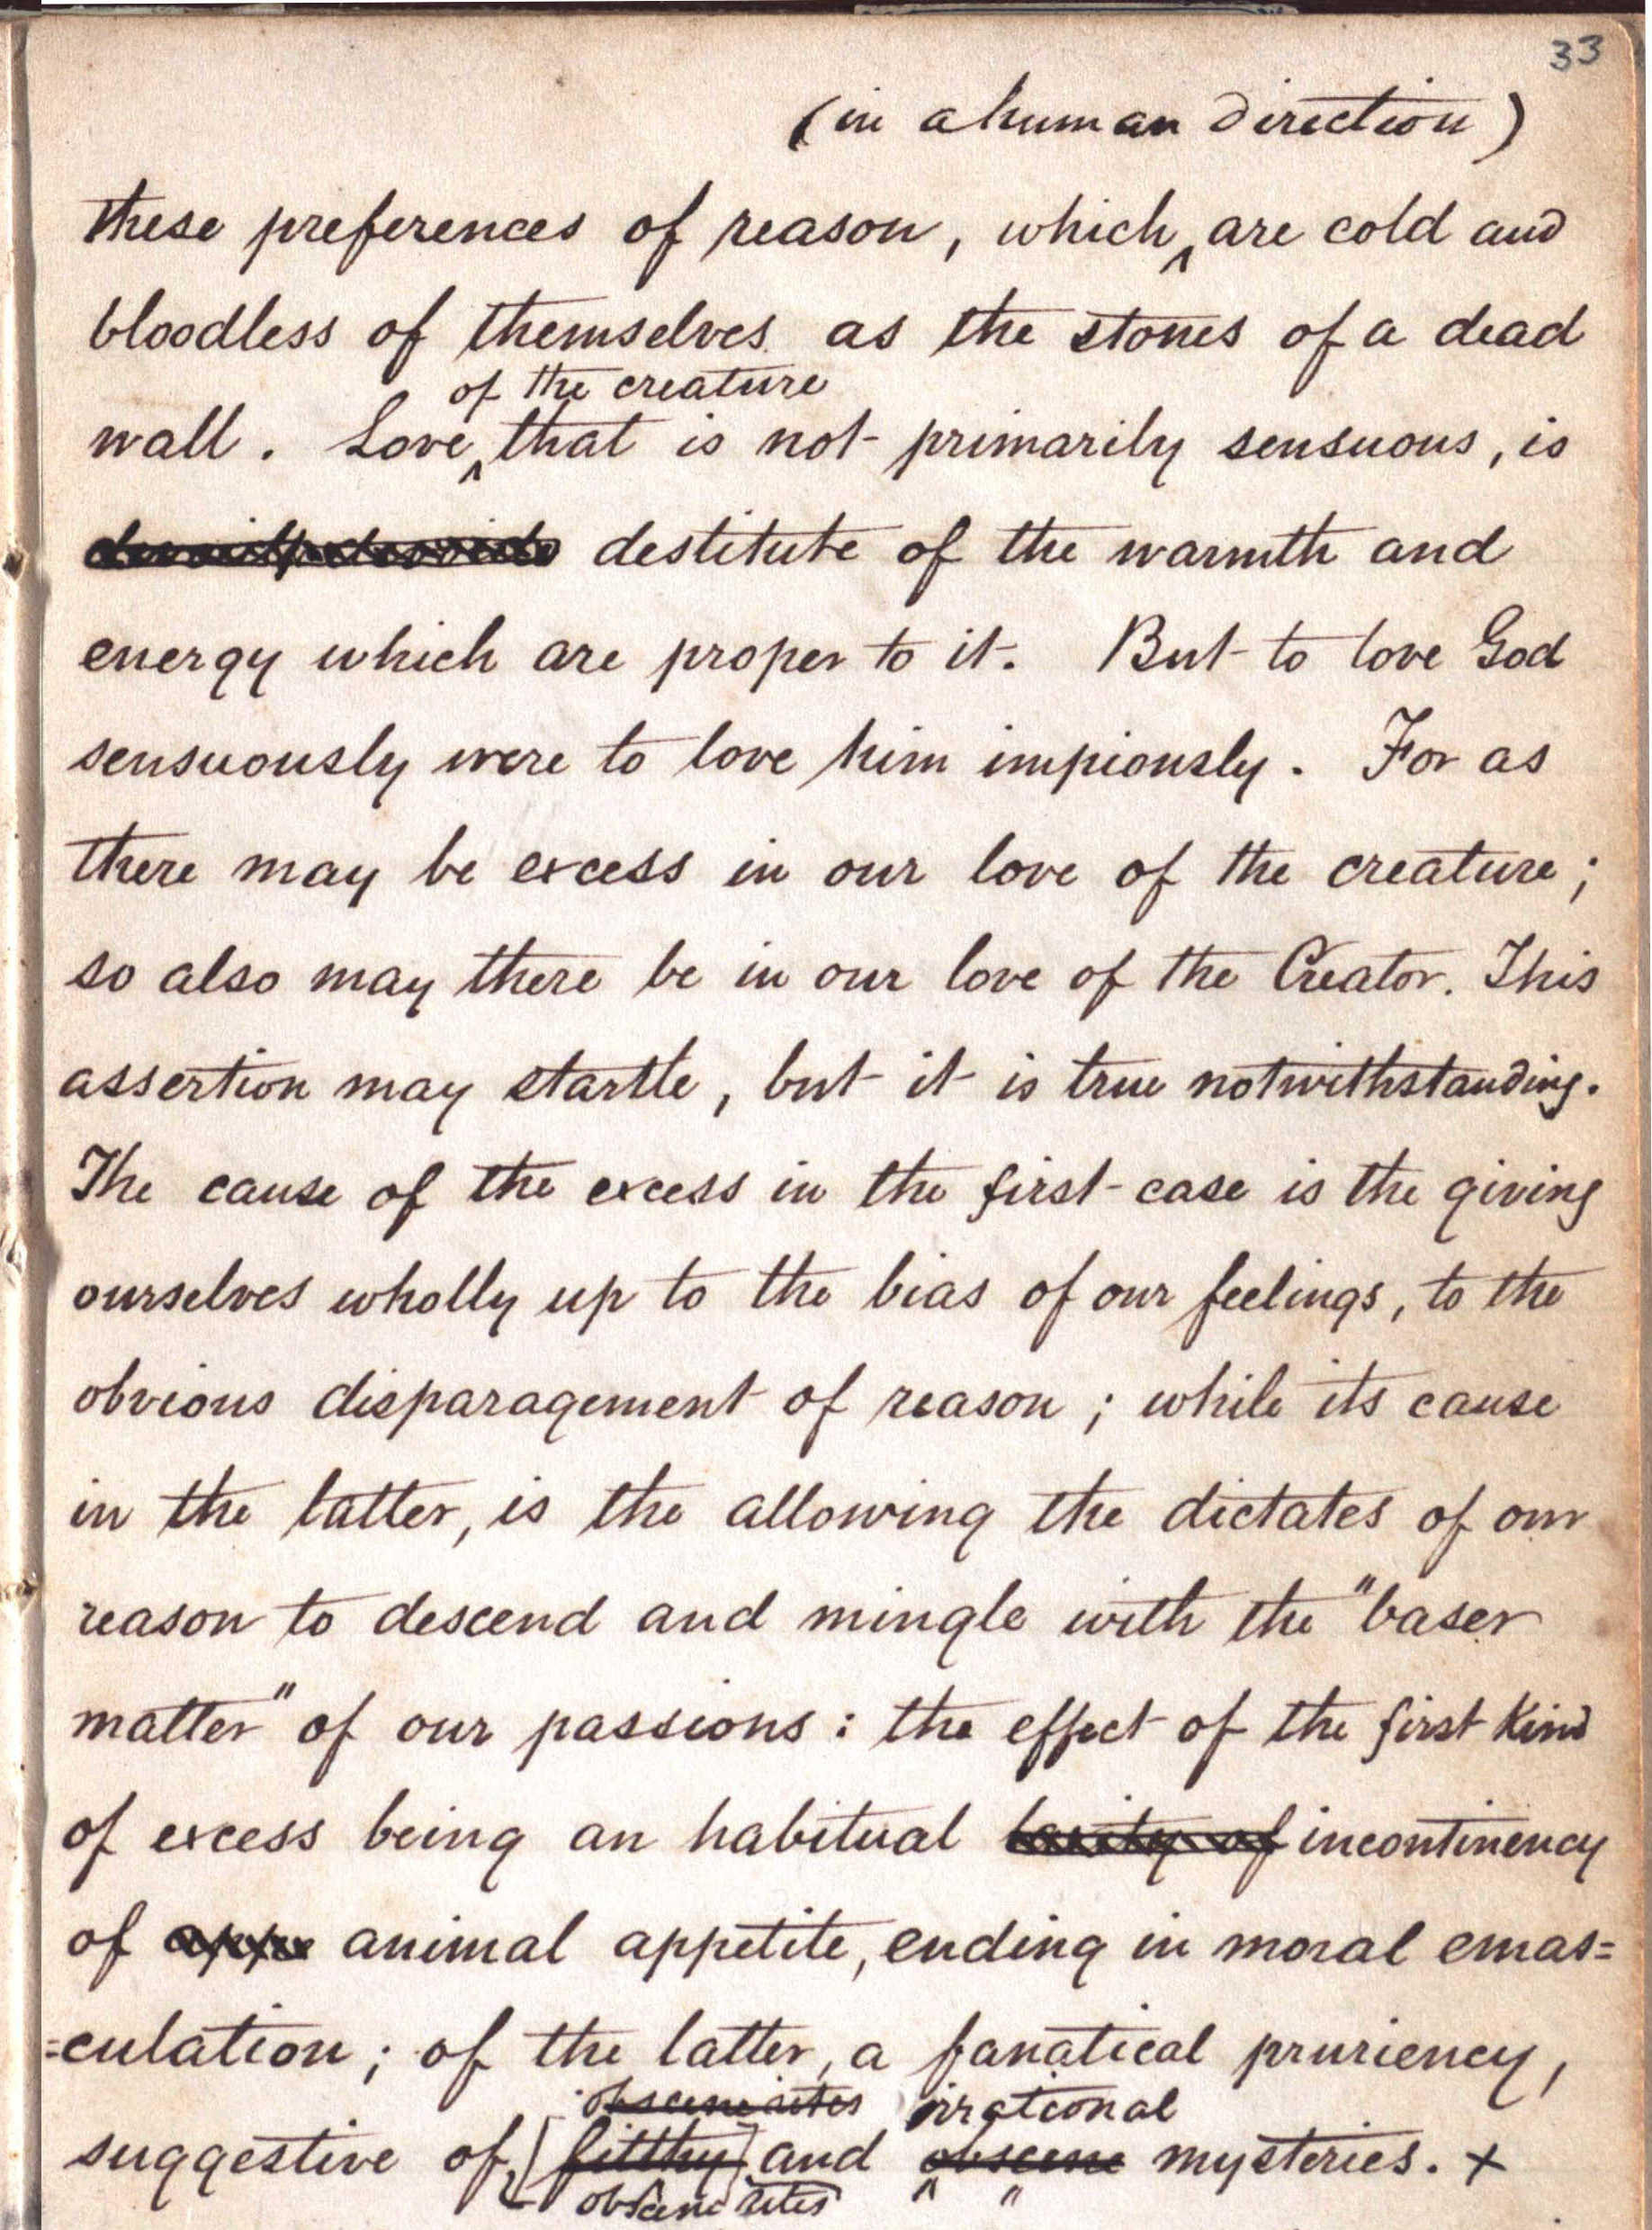 33
(in a human direction)
these preferences of reason, which ‸ are cold and
bloodless of themselves as the stones of a dead
of the creature
wall. Love ‸ that is not primarily sensuous, is
destitute of the warmth and
energy which are proper to it. But to love God
sensuously were to love him impiously. For as
there may be excess in our love of the creature;
so also may there be in our love of the Creator. This
assertion may startle, but it is true notwithstanding.
The cause of the excess in the first case is the giving
ourselves wholly up to the bias of our feelings, to the
obvious disparagement of reason; while its cause
in the latter, is the allowing the dictates of our
reason to descend and mingle with the "baser
matter" of our passions: the effect of the first kind
of excess being an habitual laxity of incontinency
of appe animal appetite, ending in moral emas=
=culation; of the latter, a fanatical pruriency,
obscene rites irrational
suggestive of ‸ [filthy] and obscene mysteries. +
obscene rites ‸ "